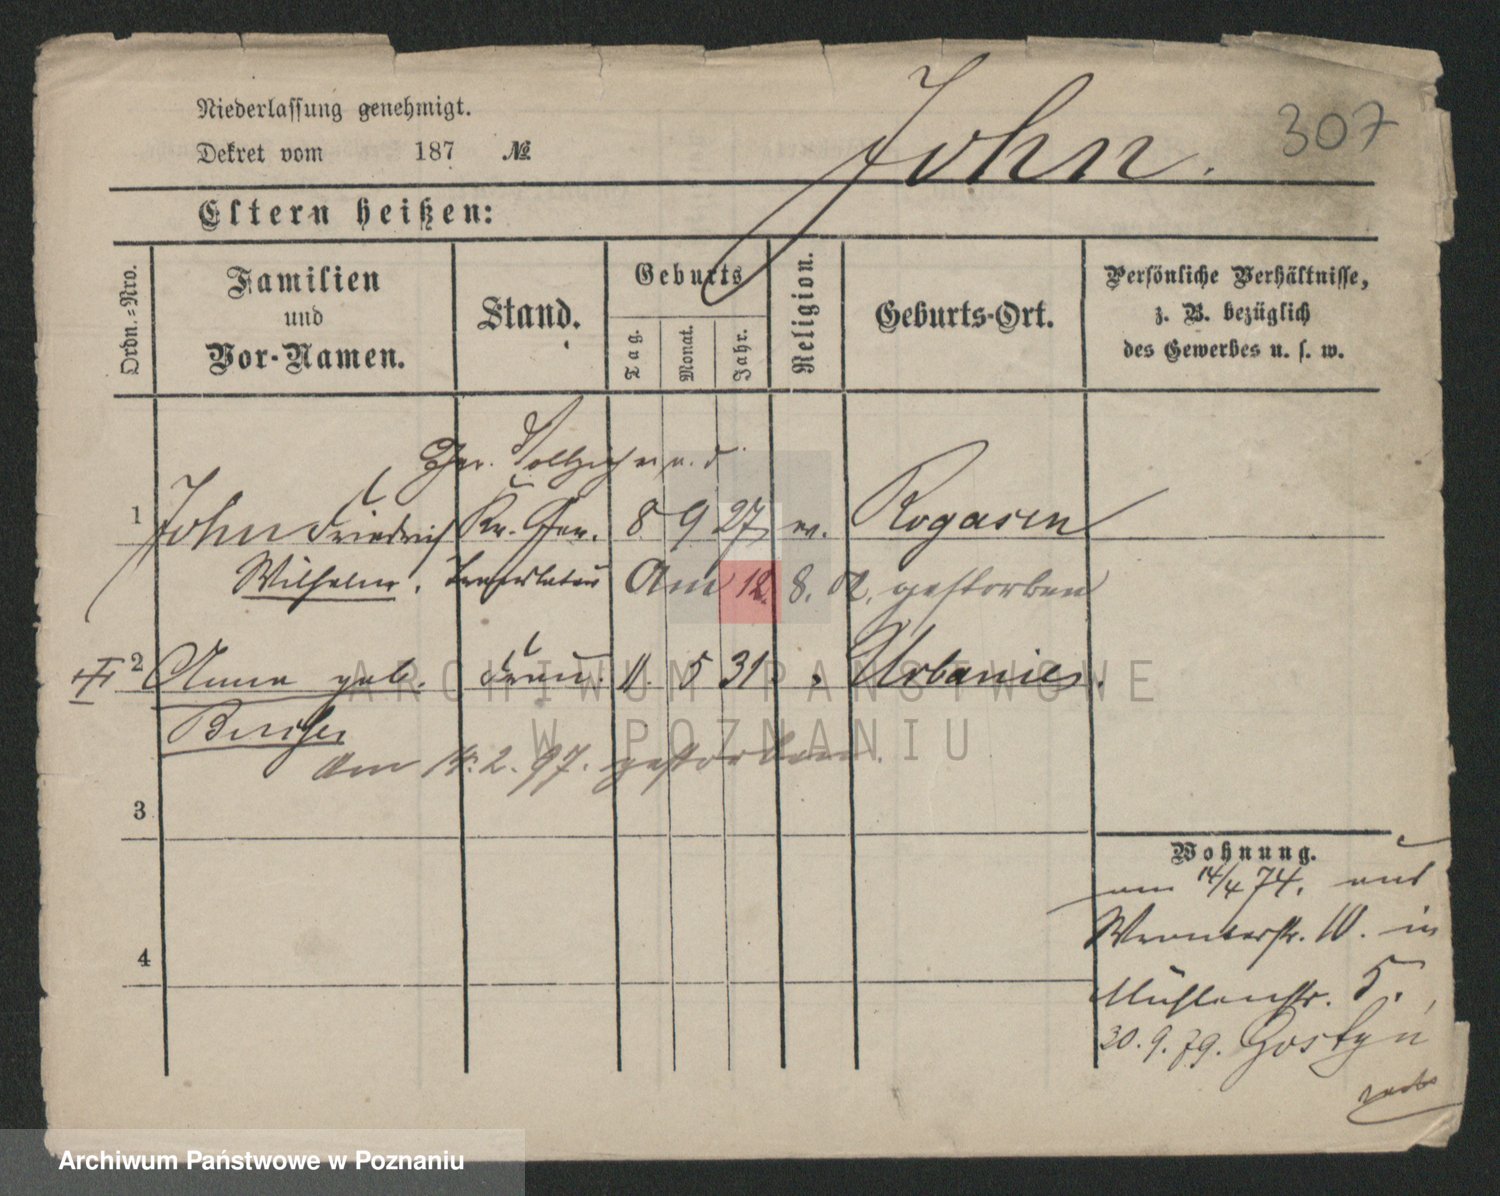 Niederlassung genehmigt.
Dekret vom 187 №
John.
307
Eltern heißen:
Ordn.-Nro.
Familien
und
Vor-Namen.
Stand.
Geburts
Tag.
Monat.
Jahr.
Religion.
Geburts-Ort.
Persönliche Verhältnisse,
z. B. bezüglich
des Gewerbes u. s. w.
1 John Friedrich Kr. Ger. 8 9 27 ev. Rogasen
Wilhelm. Translateur Am 12. 8. gestorben
2 Anna geb. Frau. 11. 5 31 Urbanie
Am 14. 2. 97. gestorben.
3
4
Wohnung.
am 14/4 74. aus
10. in
Mühlenstr. 5.
30. 9. 79. Gostyn
ARCHIWUM PAŃSTWOWE
W POZNANIU
Archiwum Państwowe w Poznaniu